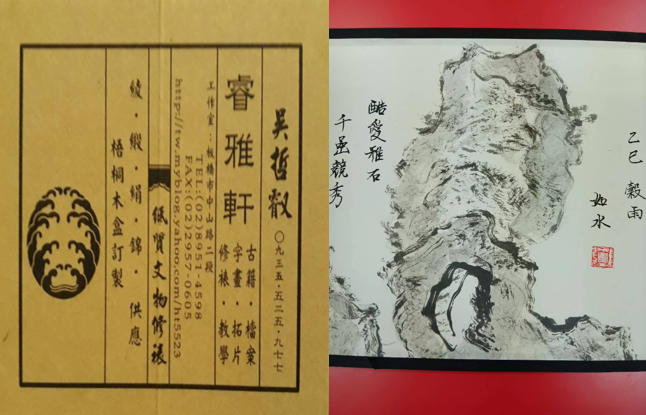 吳哲叡
〇九三五·五二五·九七七
睿雅軒
古籍·檔案
字畫·拓片
修裱·教學
工作室:板橋市中山路二段
TEL:(02)8951-4598
FAX:(02)2957-0605
http://tw.myblog.yahoo.com/ht5523
紙質文物修裱
綾·緞·絹·錦· 供應
梧桐木盒訂製
乙巳 穀雨
如水
酷愛雅石
千岩競秀